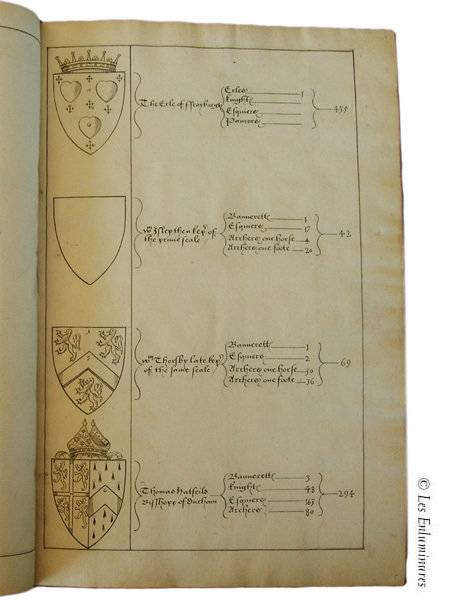 The Erle of
Erles 1
Knight
Esquiers
435
Wm Islep then kep of
the privie seale
Bannerett 1
Esquiers 17
Archers one horse 4
Archers one foote 20
42
Wm Thorsby late kep
of the same seale
Bannerett 1
Esquiers 2
Archers one horse 30
Archers one foote 36
69
Thomas Hatfeild
Bisshopp of Durham
Bannerett 3
Knight 48
Esquiers
Archers 80
294
© Les Enluminures